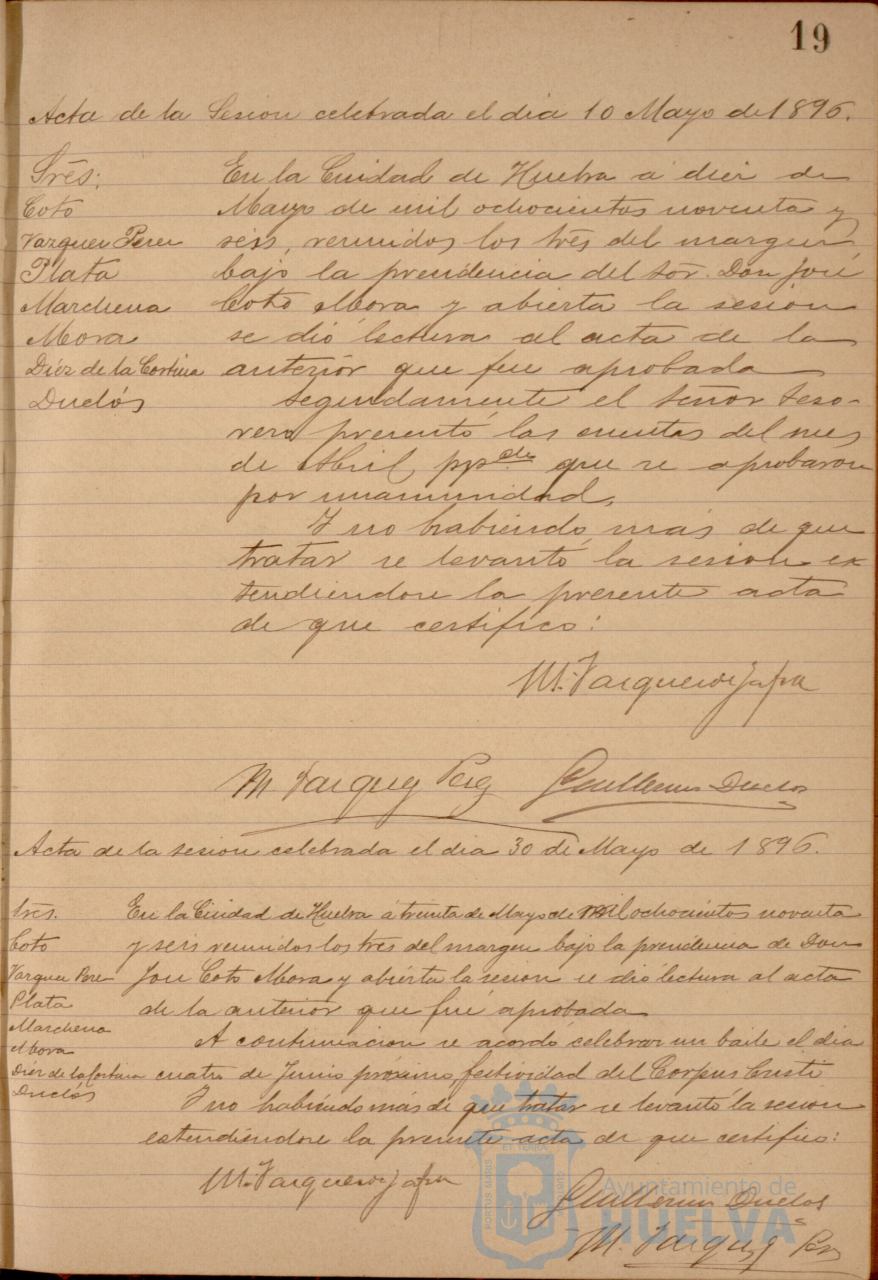 19
Acta de la Sesion celebrada el dia 10 Mayo de 1896.
Srēs:
Coto
Vazquez Perez
Plata
Marchena
Mora
Díez de la Cortina
Duclós
En la Ciudad de Huelva á diez de
Mayo de mil ochocientos noventa y
seis, reunidos los srēs del margen
bajo la presidencia del sōr. Don José
Coto Mora y abierta la sesion
se dió lectura al acta de la
anteriór que fue aprobada
Segundamente el señor Teso-
rero presentó las cuentas del mes
de Abril ppdo que se aprobaron
por unanimidad.
Y no habiendo más de que
tratar se levantó la sesion ex
tendiendose la presente acta
de que certifico:
M. Vazquez de Zafra
M Vazquez Perez
Guillermo Duclos
Acta de la sesion celebrada el dia 30 de Mayo de 1896.
Srēs.
Coto
Vazquez Perez
Plata
Marchena
Mora
Díez de la Cortina
Duclós
En la Ciudad de Huelva á treinta de Mayo de mil ochocientos noventa
y seis reunidos los sres del margen bajo la presidencia de Don
José Coto Mora y abierta la sesion se dió lectura al acta
de la anterior que fué aprobada
A continuacion se acordó celebrar un baile el dia
cuatro de Junio próximo festividad del Corpus Cristi
Y no habiendo más de que tratar se levantó la sesion
estendiéndose la presente acta de que certifico:
M. Vazquez de Zafra
Guillermo Duclos
M. Vazquez Perez
PORTUS MARIS ET TERRÆ CUSTODIA
Ayuntamiento de
HUELVA